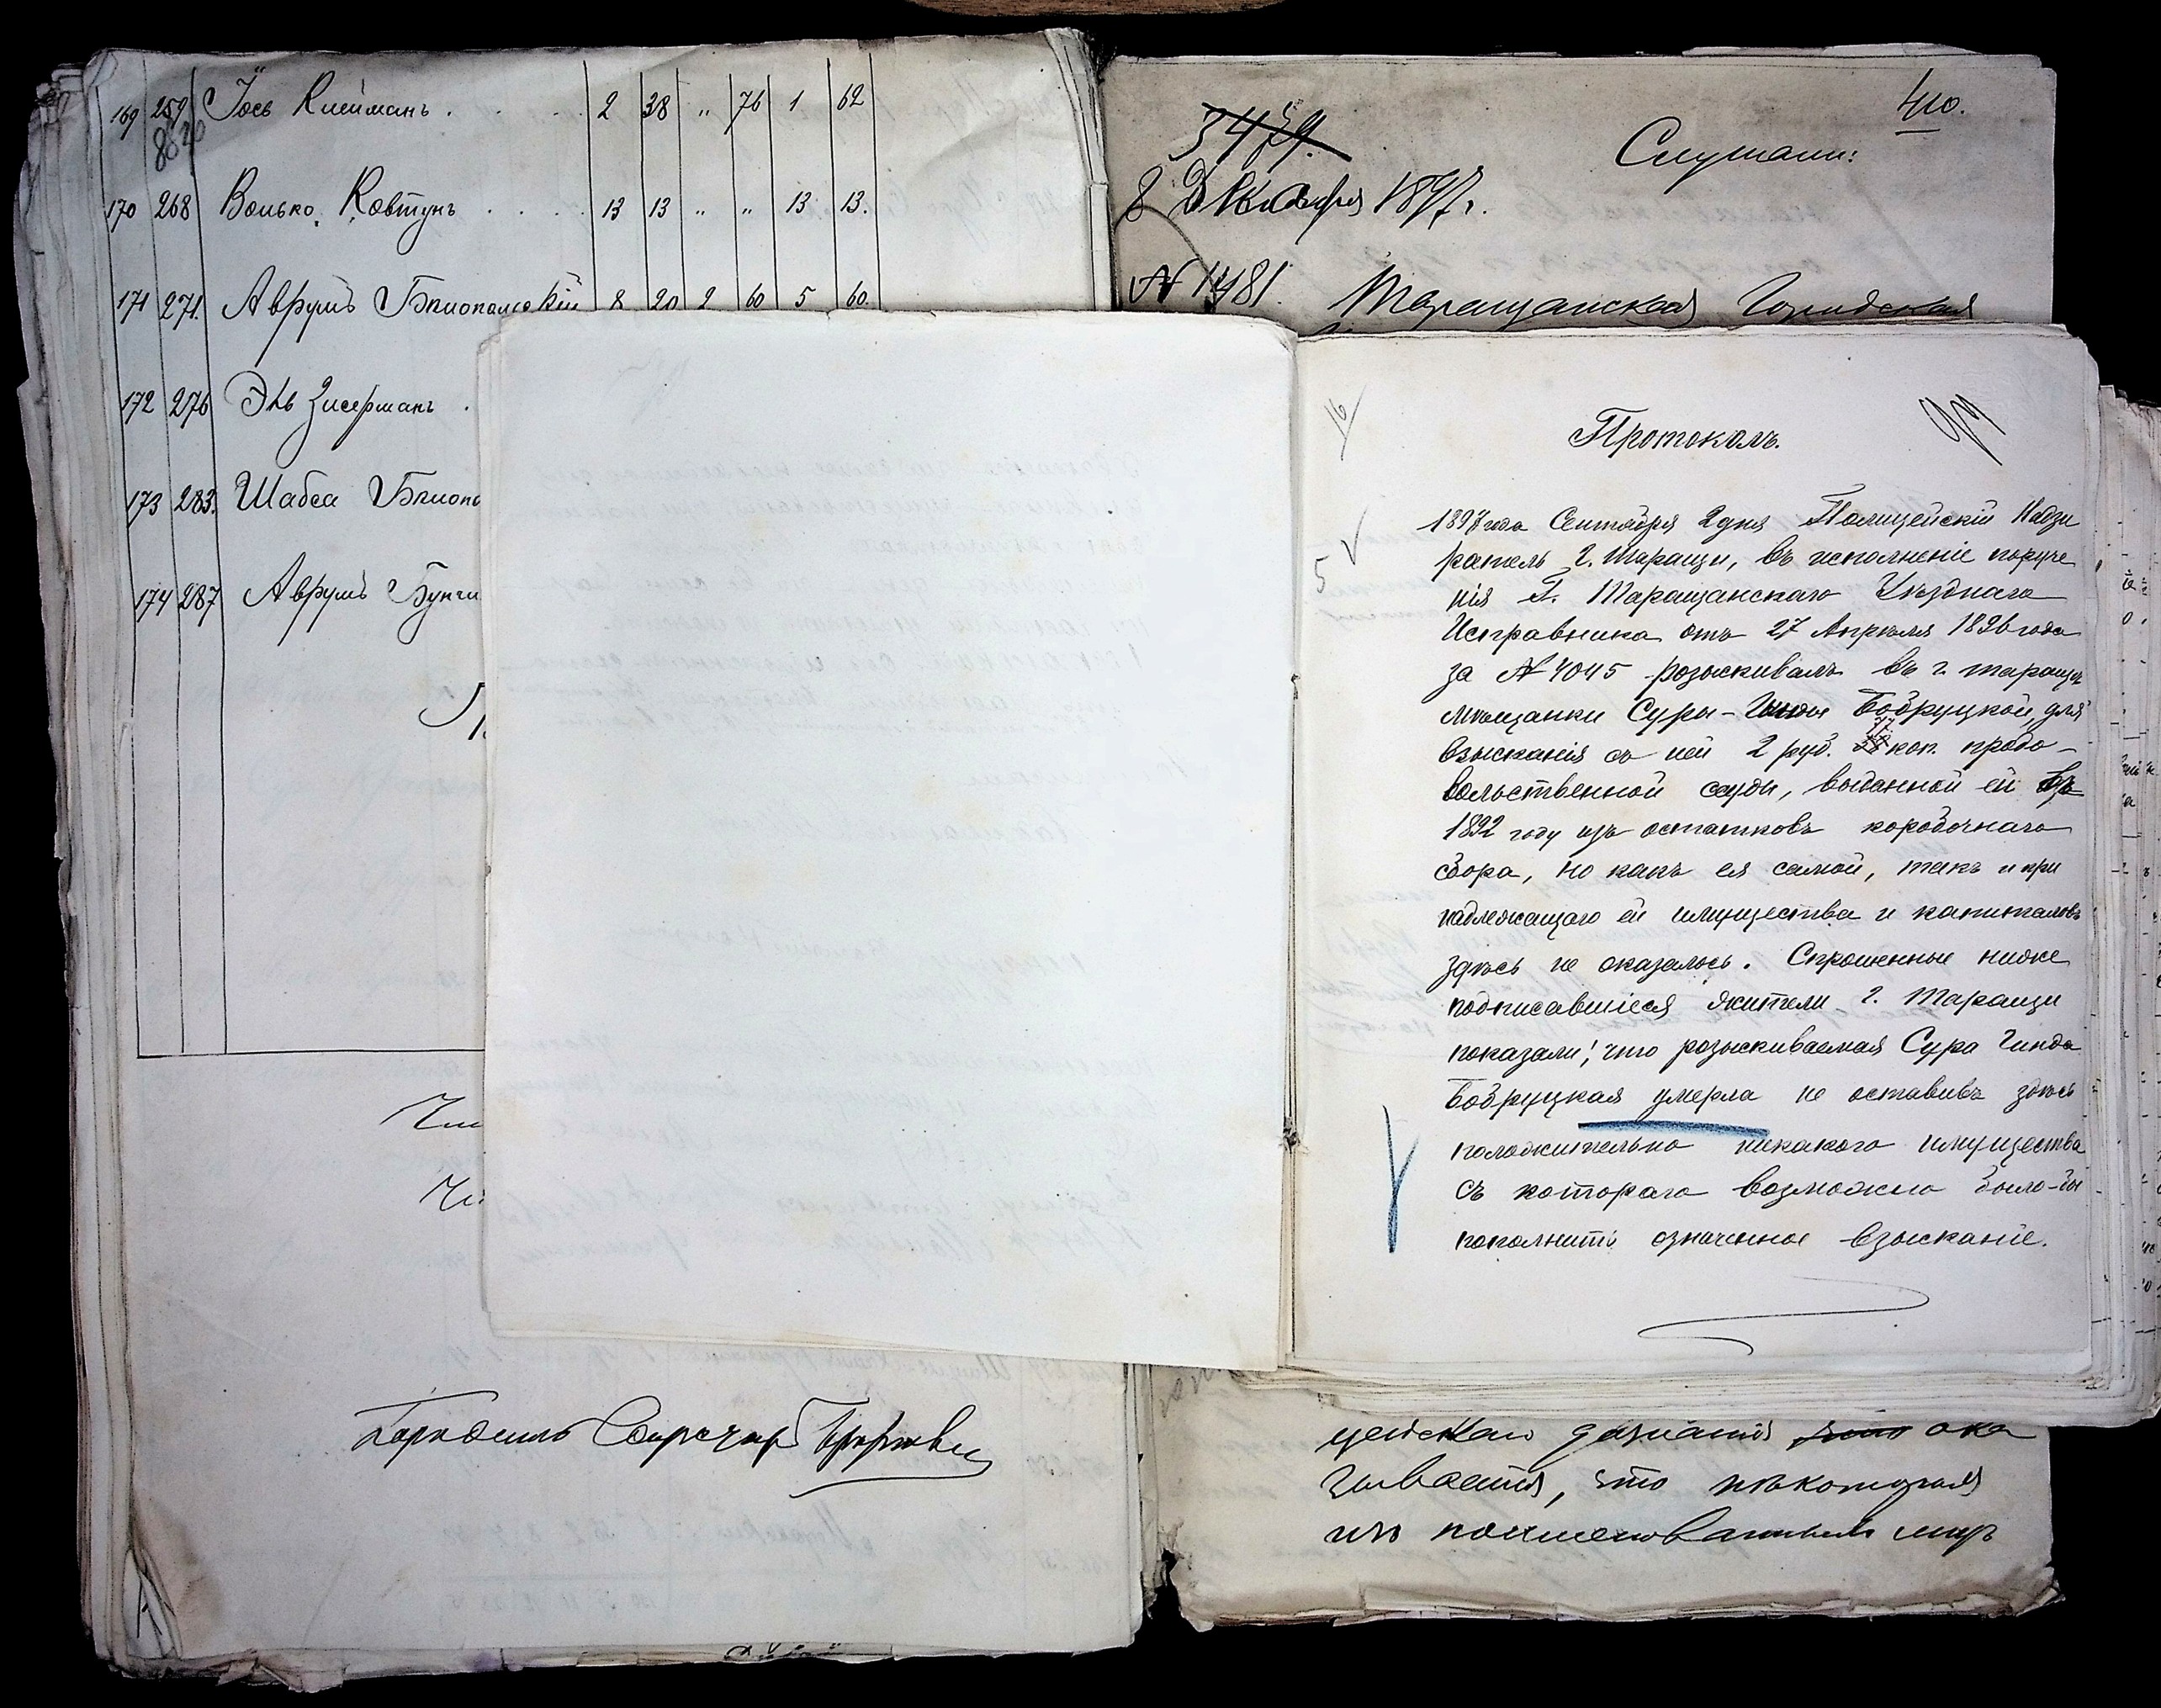 169 259 Іось Клейманъ . . . . 2 38 " 76 1 62
170 268 Волько Ковтунъ . . . . 13 13 " " 13 13.
171 271. Аврумъ Бялопольскій 8 20 2 60 5 60.
172 276 Эль Зисерманъ .
173 283. Шабса
174 287 Аврумъ
410.
Слушали:
8 Декабря 1897 г.
Таращанская Городская
Протоколъ.
1897 года Сентября 2 дня Полицейскій Надзи
ратель г. Таращи, въ исполненіе поруче
нія Г. Таращанскаго Уѣзднаго
Исправника отъ 27 Апрѣля 1896 года
за № 4045 розыскивалъ въ г. Таращѣ
мѣщанки Суры-Гинды Бобруцкой, для
взысканія съ ней 2 руб. коп. продо-
вольственной ссуды, выданной ей въ
1892 году изъ остатковъ коробочнаго
сбора, но какъ ея самой, такъ и при
надлежащаго ей имущества и капиталовъ
здѣсь не оказалось. Спрошенные ниже
подписавшіеся жители г. Таращи
показали, что розыскиваемая Сура Гинда
Бобруцкая умерла не оставивъ здѣсь
положительно никакого имущества
съ котораго возможно было-бы
пополнить означенное взысканіе.
5
цейскаго дознанія ока
зывается, что нѣкоторыя
изъ поименованныхъ лицъ